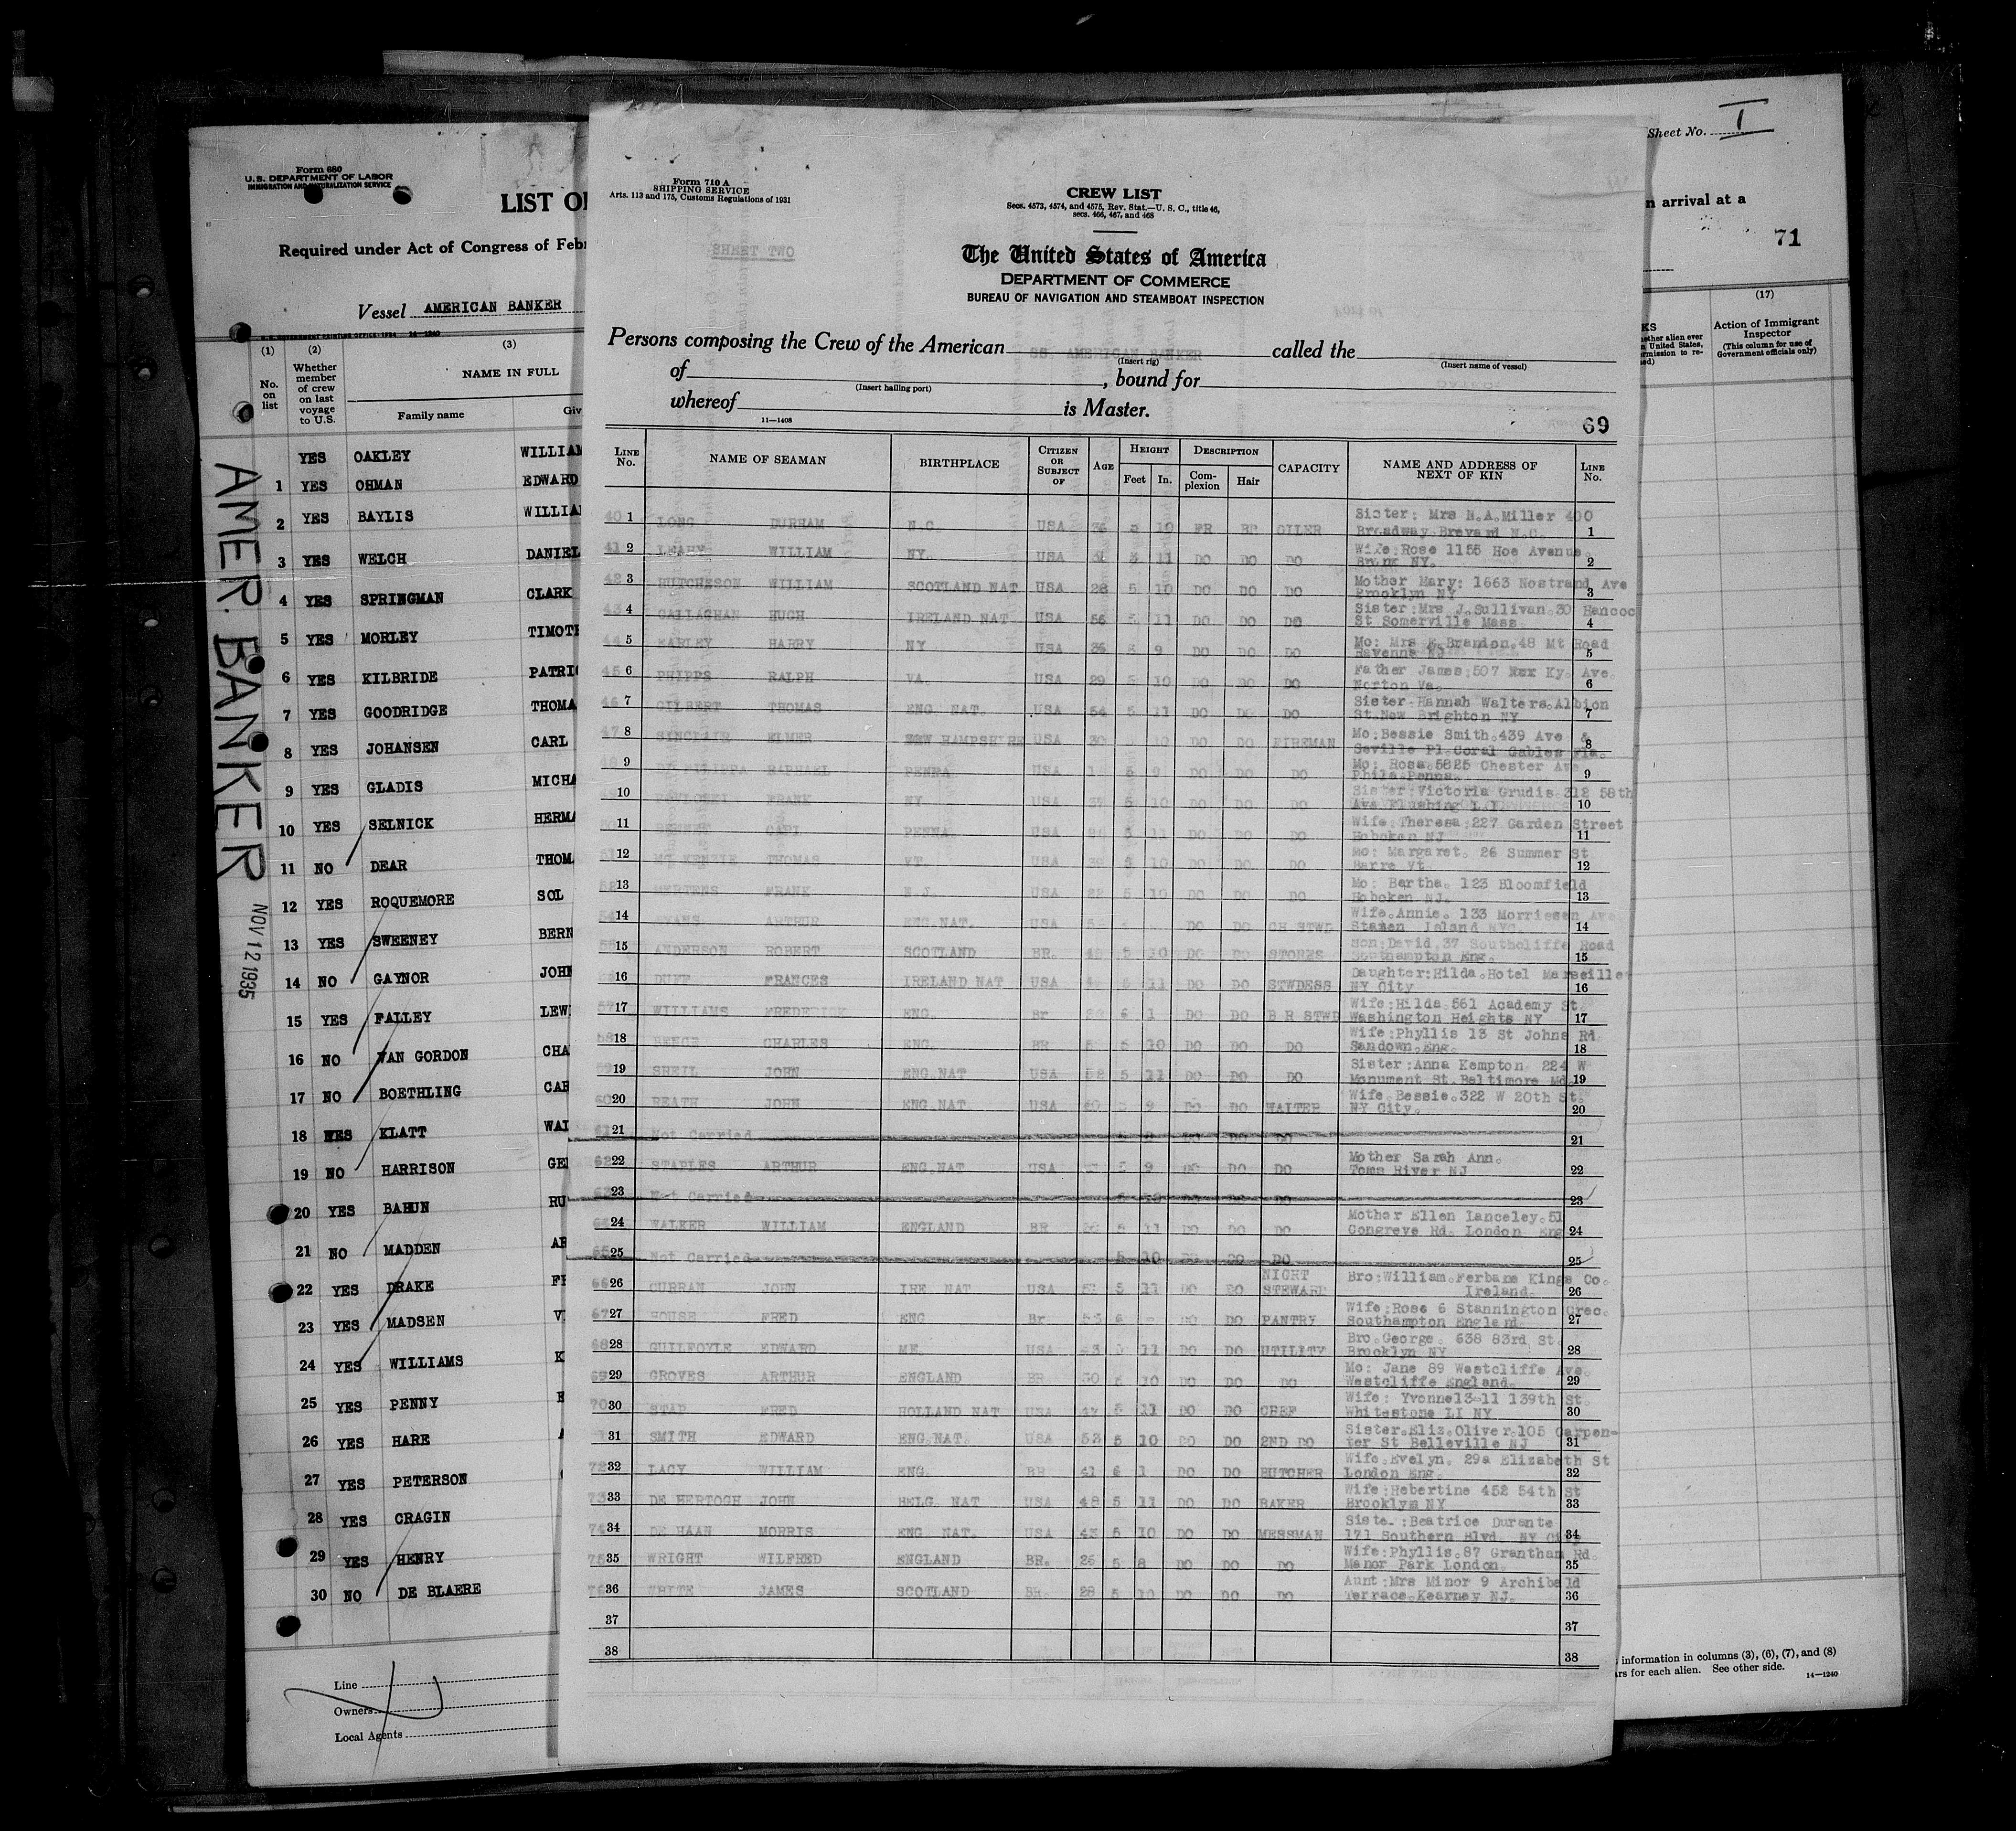 Form 680
U.S. DEPARTMENT OF LABOR
IMMIGRATION AND NATURALIZATION SERVICE
LIST OF
Required under Act of Congress of Feb
Vessel AMERICAN BANKER
(1) (2) (3)
No. on list
Whether member of crew on last voyage to U.S.
NAME IN FULL
Family name Giv
YES OAKLEY WILLIAM
1 YES OHMAN EDWARD
2 YES BAYLIS WILLIA
3 YES WELCH DANIEL
4 YES SPRINGMAN CLARK
5 YES MORLEY TIMOTH
6 YES KILBRIDE PATRIC
7 YES GOODRIDGE THOMA
8 YES JOHANSEN CARL
9 YES GLADIS MICHA
10 YES SELNICK HERMA
11 NO DEAR THOM
12 YES ROQUEMORE SOL
13 YES SWEENEY BERN
14 NO GAYNOR JOHN
15 YES FALLEY LEW
16 NO VAN GORDON CHA
17 NO BOETHLING CAR
18 YES KLATT WAL
19 NO HARRISON GE
20 YES BAHUN RU
21 NO MADDEN
22 YES DRAKE
23 YES MADSEN
24 YES WILLIAMS K
25 YES PENNY
26 YES HARE
27 YES PETERSON
28 YES CRAGIN
29 YES HENRY
30 NO DE BLAERE
Line
Owners
Local Agents
AMER. BANKER
NOV 12 1935
Form 710 A
SHIPPING SERVICE
Arts. 113 and 175, Customs Regulations of 1931
SHEET TWO
CREW LIST
Secs. 4573, 4574, and 4575, Rev. Stat.—U. S. C., title 46,
secs. 466, 467, and 468
The United States of America
DEPARTMENT OF COMMERCE
BUREAU OF NAVIGATION AND STEAMBOAT INSPECTION
Persons composing the Crew of the American SS. AMERICAN BANKER called the
(Insert rig) (Insert name of vessel)
of , bound for
(Insert hailing port)
whereof is Master.
11—1408
69
LINE No. NAME OF SEAMAN BIRTHPLACE CITIZEN OR SUBJECT OF AGE HEIGHT Feet In. DESCRIPTION Complexion Hair CAPACITY NAME AND ADDRESS OF NEXT OF KIN LINE No.
40 1 LONG DURHAM N.C. USA 5 10 FR BR OILER Sister: Mrs N.A.Miller 400
Broadway Brevard N.C. 1
41 2 LEAHY WILLIAM NY. USA 11 DO DO DO Wife:Rose 1155 Hoe Avenue
Bronx NY. 2
42 3 HUTCHESON WILLIAM SCOTLAND NAT USA 28 5 10 DO DO DO Mother Mary: 1663 Nostrand Ave
Brooklyn NY 3
43 4 CALLAGHAN HUGH IRELAND NAT USA 56 5 11 DO DO DO Sister:Mrs J.Sullivan.30 Hancoc
St Somerville Mass 4
5 FARLEY HARRY NY USA 36 9 DO DO DO Mo: Mrs Brandon.48 Mt Road
Ravenna 5
45 6 PHIPPS RALPH VA. USA 29 5 10 DO DO DO Father James:507 Ky. Ave.
Norton Va. 6
46 7 GILBERT THOMAS ENG NAT. USA 54 5 11 DO DO DO Sister Hannah Walters.Albion
St.New Brighton NY 7
47 8 SINCLAIR ELMER NEW HAMPSHIRE USA 30 10 DO DO FIREMAN Mo:Bessie Smith.439 Ave &
Seville Pl.Coral Gables Fla. 8
9 RAPHAEL PENNA USA 5 9 DO DO DO Mo: Rosa.5825 Chester Ave
Phila.Penna. 9
10 FRANK NY USA 5 10 DO DO DO Sister:Victoria Grudis.312 58th
Ave Flushing L.I. 10
11 CARL PENNA. USA 11 DO DO DO Wife Theresa:227 Garden Street
Hoboken NJ 11
51 12 MC KENZIE THOMAS VT. USA 5 10 DO DO DO Mo: Margaret. 26 Summer St
Barre Vt. 12
52 13 MERTENS FRANK N.J. USA 22 5 10 DO DO DO Mo: Bertha. 123 Bloomfield
Hoboken NJ. 13
54 14 EVANS ARTHUR ENG.NAT. USA DO DO CH STWD Wife.Annie. 133 Morriesen Ave
Staten Island NYC. 14
55 15 ANDERSON ROBERT SCOTLAND BR. 5 10 DO DO STORES Son:David.37 Southcliffe Road
Southampton Eng. 15
16 DUFF FRANCES IRELAND NAT USA 11 DO DO STWDESS Daughter:Hilda.Hotel Marseille
NY City 16
57 17 WILLIAMS FREDERICK ENG. Br 6 1 DO DO B R STWD Wife:Hilda.561 Academy St.
Washington Heights NY 17
58 18 BENCE CHARLES ENG. BR 5 10 DO DO DO Wife:Phyllis 13 St Johns Rd
Sandown.Eng. 18
59 19 SHEIL JOHN ENG.NAT USA 52 5 11 DO DO DO Sister:Anna Kempton 224 W
Monument St.Baltimore Md 19
60 20 HEATH JOHN ENG.NAT USA 9 DO DO WAITER Wife.Bessie.322 W 20th St.
NY City. 20
61 21 Not Carried DO DO DO 21
62 22 STAPLES ARTHUR ENG.NAT USA 9 DO DO DO Mother Sarah Ann.
Toms River NJ 22
63 23 Not Carried DO 23
64 24 WALKER WILLIAM ENGLAND BR 5 11 DO DO DO Mother Ellen Lanceley.51
Congreve Rd. London Eng 24
65 25 Not Carried 5 10 DO DO DO 25
66 26 CURRAN JOHN IRE NAT USA 5 11 DO DO NIGHT STEWARD Bro:William.Ferbane Kings Co.
Ireland. 26
67 27 HOUSE FRED ENG Br. 53 DO DO PANTRY Wife:Rose 6 Stannington Crec.
Southampton England. 27
68 28 GUILFOYLE EDWARD ME. USA 43 11 DO DO UTILITY Bro.George. 638 83rd St.
Brooklyn NY 28
69 29 GROVES ARTHUR ENGLAND BR 30 5 10 DO DO DO Mo: Jane 89 Westcliffe Ave.
Westcliffe England. 29
70 30 STAP FRED HOLLAND NAT USA 47 5 11 DO DO CHEF Wife: Yvonne13-11 139th St.
Whitestone LI NY 30
31 SMITH EDWARD ENG.NAT. USA 52 5 10 DO DO 2ND DO Sister.Eliz.Oliver.105 Carpen-
ter St Belleville NJ 31
72 32 LACY WILLIAM ENG. BR 41 6 1 DO DO BUTCHER Wife.Evelyn. 29a Elizabeth St
London Eng. 32
73 33 DE HERTOGH JOHN BELG. NAT USA 48 5 11 DO DO BAKER Wife:Hubertine 452 54th St
Brooklyn NY 33
74 34 DE HAAN MORRIS ENG NAT. USA 43 5 10 DO DO MESSMAN Siste.:Beatrice Durante
171 Southern Blvd. NY City 34
75 35 WRIGHT WILFRED ENGLAND BR. 26 5 8 DO DO DO Wife:Phyllis.87 Grantham Rd.
Manor Park London. 35
76 36 WHITE JAMES SCOTLAND BR. 28 5 10 DO DO DO Aunt:Mrs Minor 9 Archibald
Terrace.Kearney NJ. 36
37 37
38 38
Sheet No. I
n arrival at a
71
(17)
KS
ether alien ever
n United States,
rmission to re-
ed)
Action of Immigrant Inspector
(This column for use of Government officials only)
information in columns (3), (6), (7), and (8)
rs for each alien. See other side.
14—1240